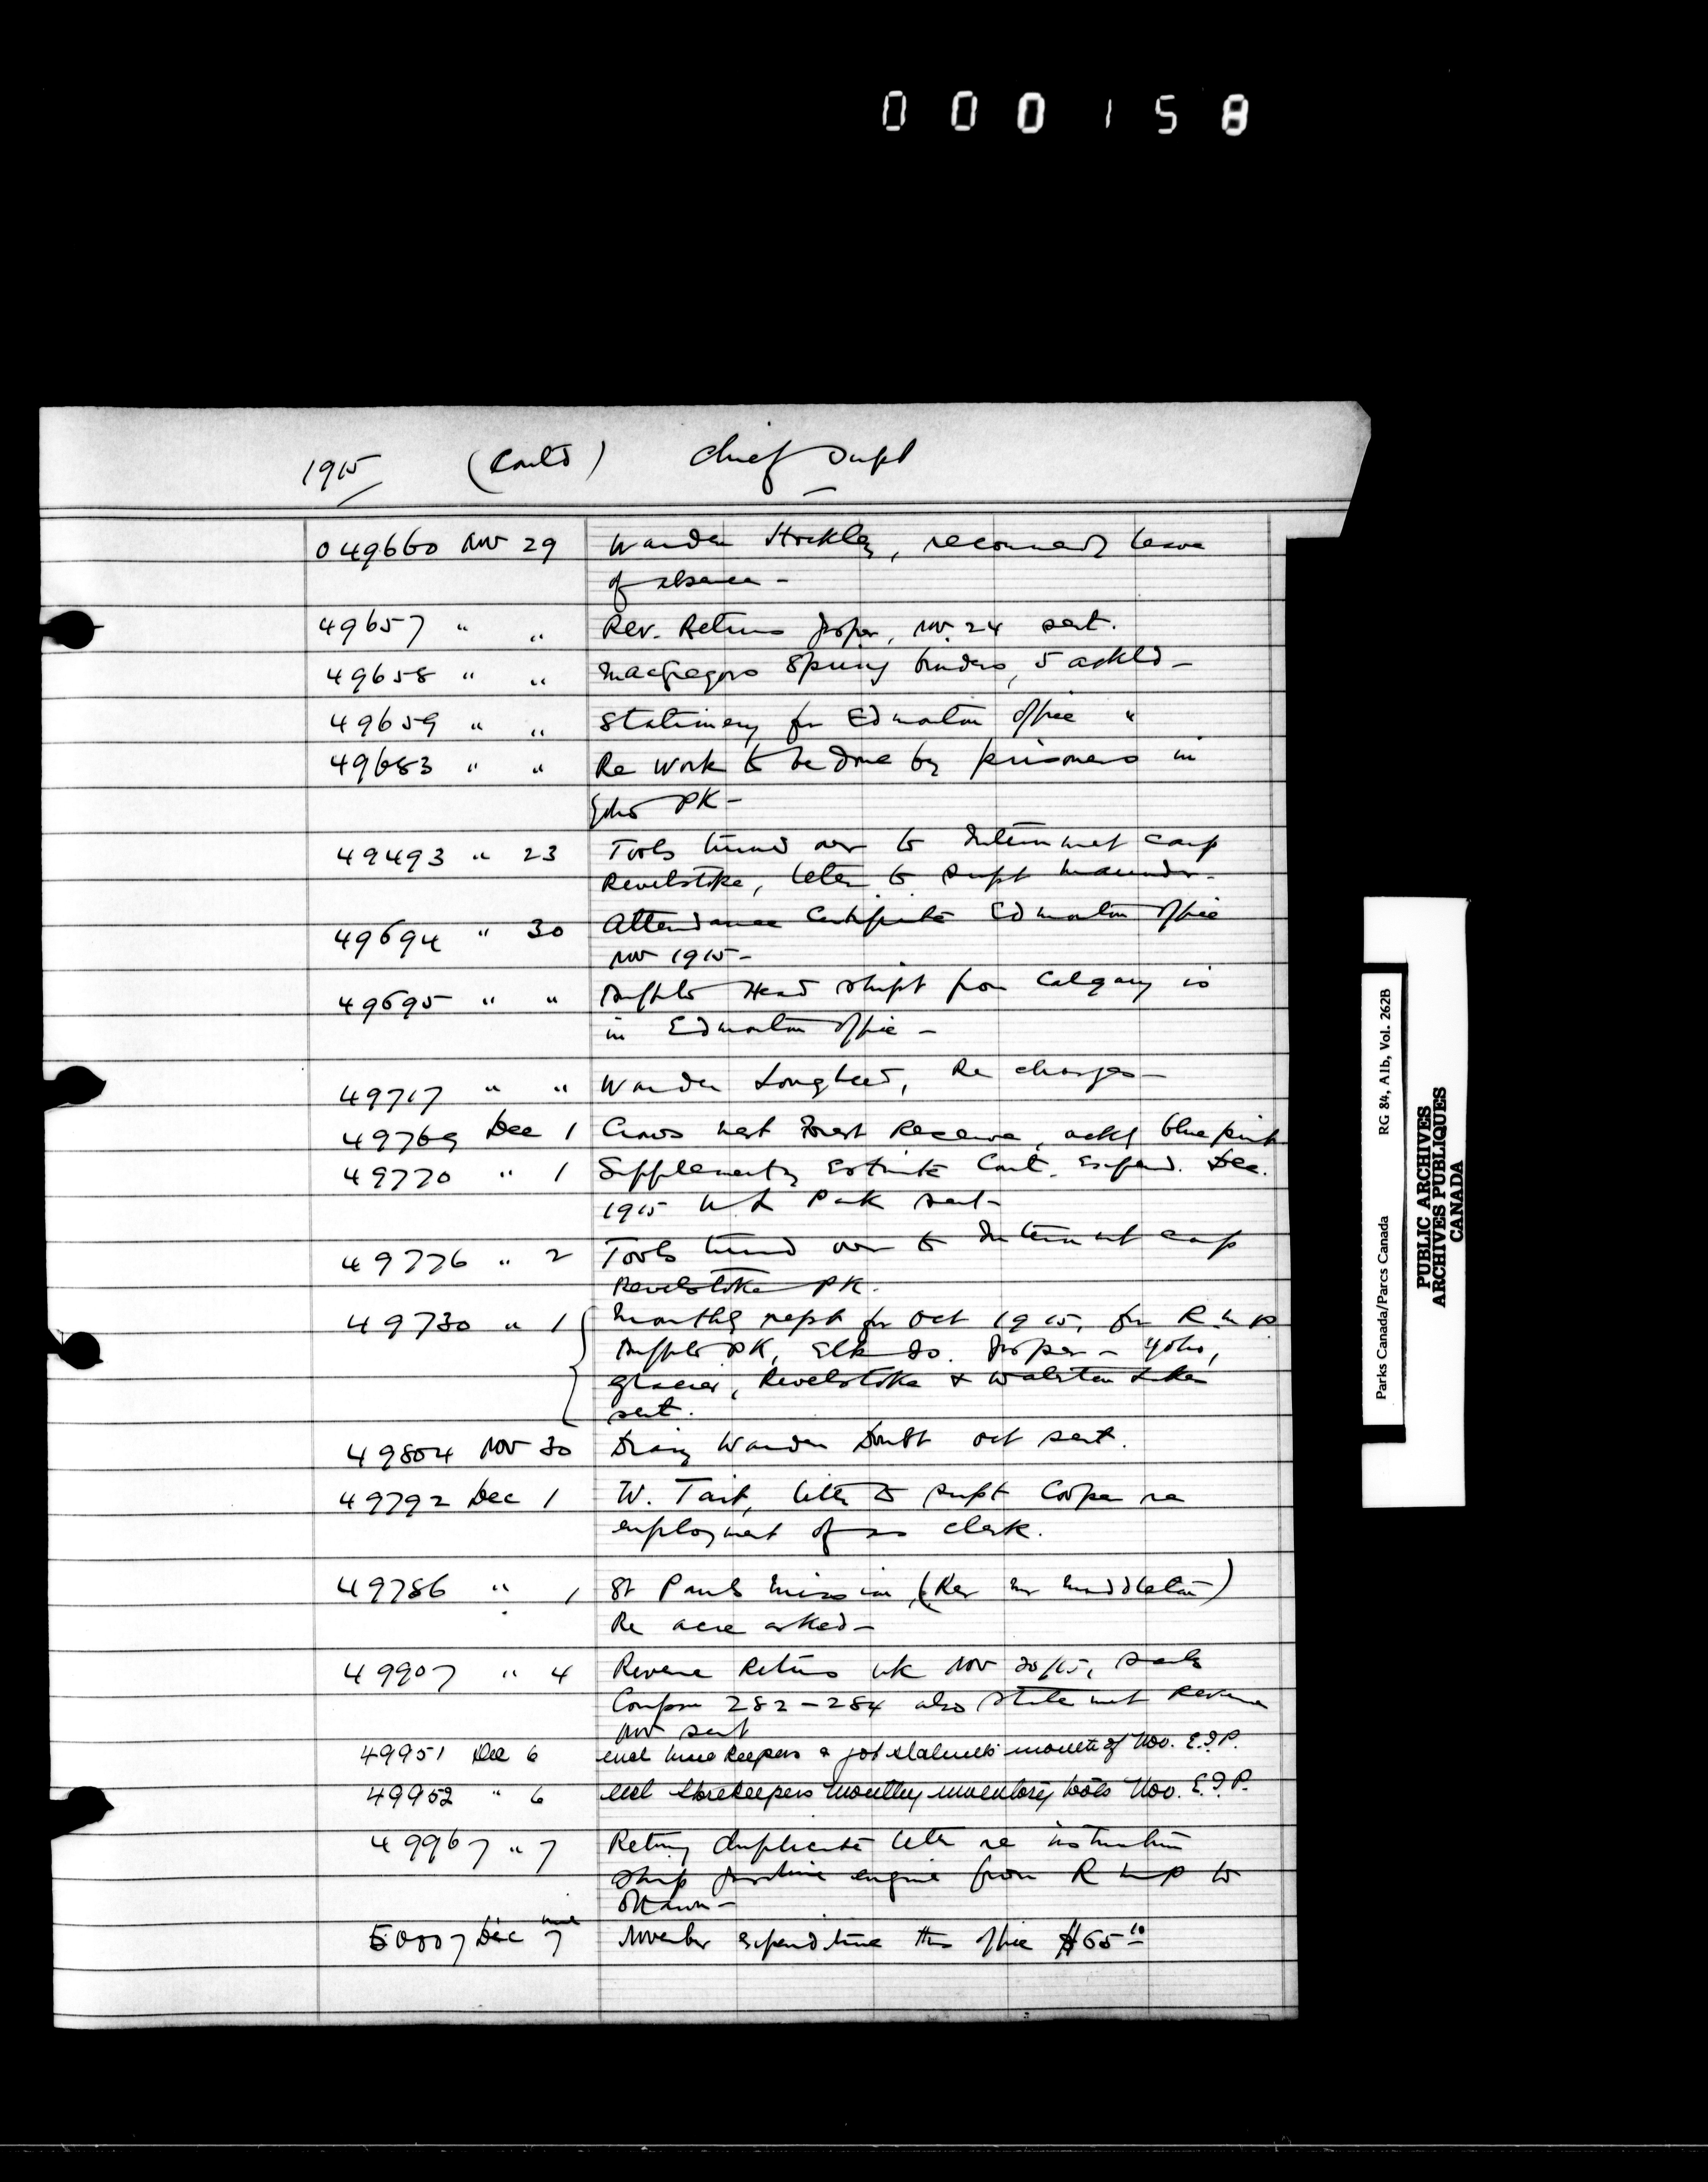 000158
1915 (Contd) Chief Supt
049660 Nov 29 Warden Hockley, recommends leave
of absence -
49657 " " Rev. Returns Jasper, Nov. 24 sent.
49658 " " MacGregors Spring binders, 5 ackld -
49659 " " Stationery for Edmonton Office "
49683 " " Re Work to be done by prisoners in
Yoho PK -
49493 " 23 Tools turned over to Internment Camp
Revelstoke, letter to Supt Maunder -
49694 " 30 Attendance Certificate Edmonton Office
Nov 1915 -
49695 " " Buffalo Head shipt from Calgary is
in Edmonton Office -
49717 " " Warden Lougheed, Re charges -
49769 Dec 1 Crows nest Forest Reserve, ackg blue print
49770 " 1 Supplementy Estimate Cont. Expend. Dec.
1915 W L Park sent -
49776 " 2 Tools turned over to Internment Camp
Revelstoke PK.
49730 " 1 Monthly rept for Oct 1915, for R M P
Buffalo PK, Elk Is. Jasper - Yoho,
Glacier, Revelstoke & Waterton Lakes
sent.
49804 Nov 30 Diary Warden Oct sent.
49792 Dec 1 W. Tait, letter to Supt Cooper re
employment of as clerk.
49786 " 1 St Pauls Mission, (Rev Mr Middleton)
Re acre asked -
49907 " 4 Revenue Returns wk Nov 30/15,
Coupon 282-284 also statement Revenue
Nov sent
49951 Dec 6 encl time keepers & job statements month of Nov. E.I.P.
49952 " 6 encl storekeepers monthly inventory tools Nov. E.I.P.
49967 " 7 Returng duplicate letter re instruction
ship gasoline engine from R M P to
Ottawa -
50007 Dec 7 November expenditure this office $65 10
Parks Canada/Parcs Canada RG 84, A1b, Vol. 262B
PUBLIC ARCHIVES
ARCHIVES PUBLIQUES
CANADA